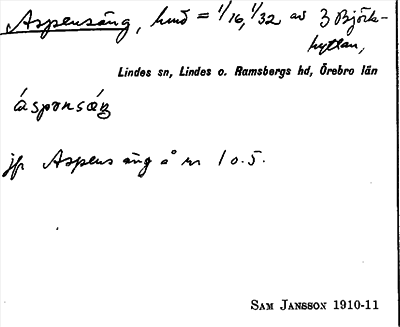 Aspensäng, hmd = 1/16, 1/32 av 3 Björk-
hyttan,
Lindes sn, Lindes o. Ramsbergs hd, Örebro län
áspɵnsǽŋ
jfr Aspens äng å nr 1 o. 5.
SAM JANSSON 1910-11